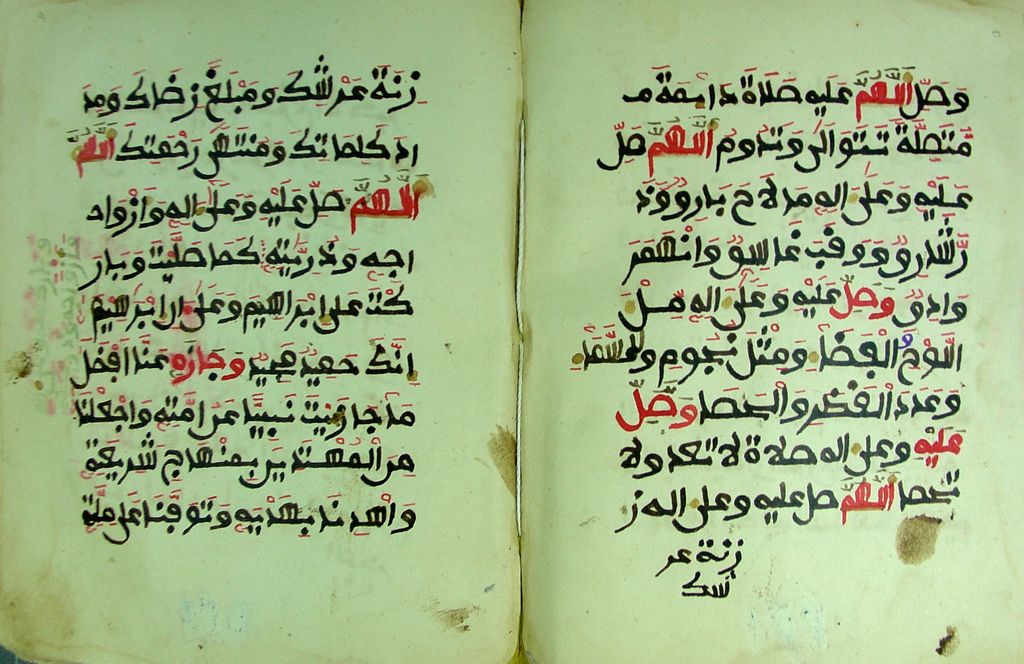 وَصَلِّ اَللَّهُمَّ عَلَيهِ صَلَاةً دَائِمَةً مـ
مُّتَصِلَةً تَتَوَالَى وَتَدُومُ اَللَّهُمَّ صَلِّ
عَلَيْهِ وَعَلَى الِهِ مَا لَاحَ بَارِقٌ وَذَ
رَّ شَارِقٌ وَوَقَبَ غَاسِقٌ وَانْهَمَرَ
وَادِقٌ وَصَلِّ عَلَيهِ وَعَلَى الِهِ مِلْ
اللَّوْحِ وَالْفَضَا وَمِثْلَ نُجُومِ السَّمَا
وَعَدَدَ الْقَطْرِ وَالْحَصَا وَصَلِّ
عَلَيهِ وعلى اله صلاة لا تعد ولا
تحصا اللهم صل عليه وعلى اله ز
زنة عر
شك
زِنَةَ عَرْشِكَ وَمَبْلَغَ رِضَاكَ وَمِدَ
ادَ كَلِمَاتِكَ وَمُنْتَهَى رَحْمَتِكَ اللهم
اَللَّهُمَّ صَلِّ عَلَيهِ وَعَلَى الِهِ وَازْوَاد
اجِهِ وَذُرِّيَّتِهِ كَمَا صَلَّيْتَ وَبَارَ
كْتَ عَلَى ابْرَاهِيمَ وَعَلَى الِ ابْرَاهِيمَ
انَّكَ حَمِيدٌ مَجِيدٌ وَجَازِهِ عَنَّا افْضَلَ
مَا جَازَيْتَ نَبِيًّا عَنْ امَّتِهِ وَاجْعَلْنَا
مِنَ الْمُهْتَدِينَ بِمِنْهَاجِ شَرِيعَتِهِ
وَاهْدِنَا بِهَدْيِهِ وَتَوَفَّنَا عَلَى مِلَّتِهِ